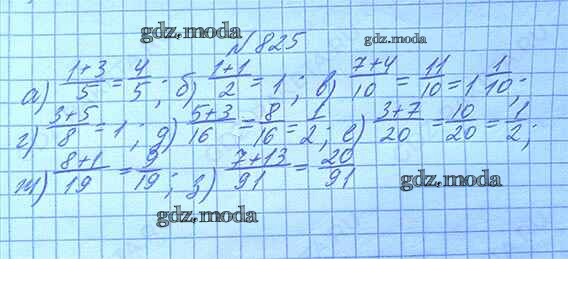 gdz.moda
№ 825
gdz.moda
а) (1+3)/5 = 4/5; б) (1+1)/2 = 1; в) (7+4)/10 = 11/10 = 1 1/10;
г) (3+5)/8 = 1; д) (5+3)/16 = 8/16 = 1/2; е) (3+7)/20 = 10/20 = 1/2;
ж) (8+1)/19 = 9/19; з) (7+13)/91 = 20/91
gdz.moda
gdz.moda